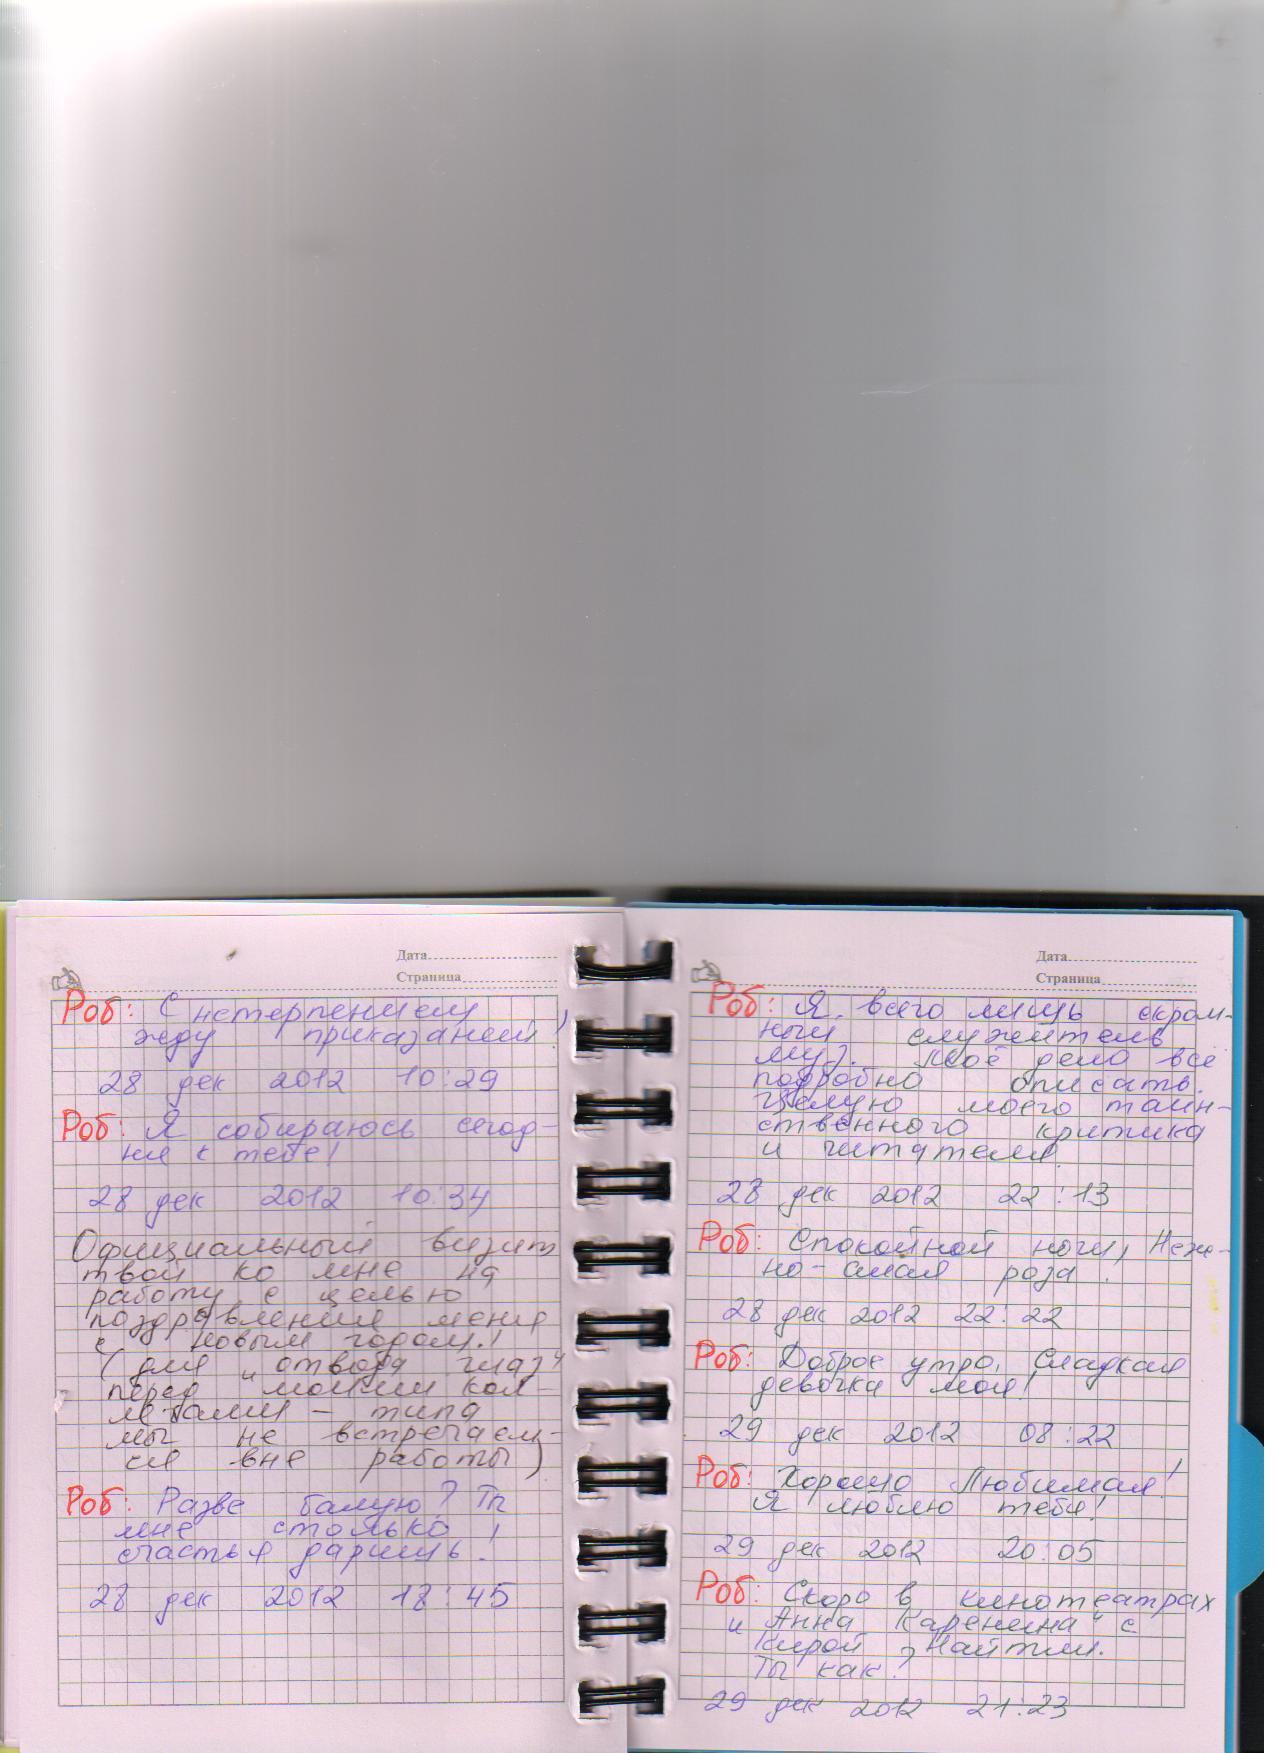 Дата
Страница
Роб: С нетерпением
жду приказаний!
28 дек 2012 10:29
Роб: Я собираюсь сегод-
ня к тебе!
28 дек 2012 10:34
Официальный визит
твой ко мне на
работу с целью
поздравления меня
с новым годом!
(для „отвода глаз"
перед моими кол-
легами – типа
мы не встречаем-
ся вне работы)
Роб: Разве балую? Ты
мне столько
счастья даришь!
28 дек 2012 18:45
Дата
Страница
Роб: Я всего лишь скром-
ный служитель
муз. Моё дело всё
подробно описать.
Целую моего таин-
ственного критика
и читателя.
28 дек 2012 22:13
Роб: Спокойной ночи, Неж-
но-алая роза.
28 дек 2012 22:22
Роб: Доброе утро, Сладкая
девочка моя!
29 дек 2012 08:22
Роб: Хорошо Любимая!
Я люблю тебя!
29 дек 2012 20:05
Роб: Скоро в кинотеатрах
„Анна Каренина" с
Кирой Найтли.
Ты как?
29 дек 2012 21:23